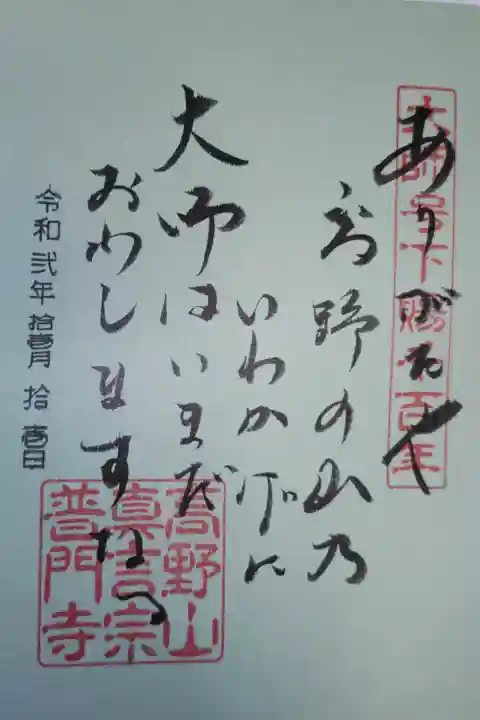 大師号下賜千百年
ありがたや
高野の山乃
いわかげに
大師はいまだ
おわしますなる
令和弐年拾壹月拾壱日
高野山
真言宗
普門寺